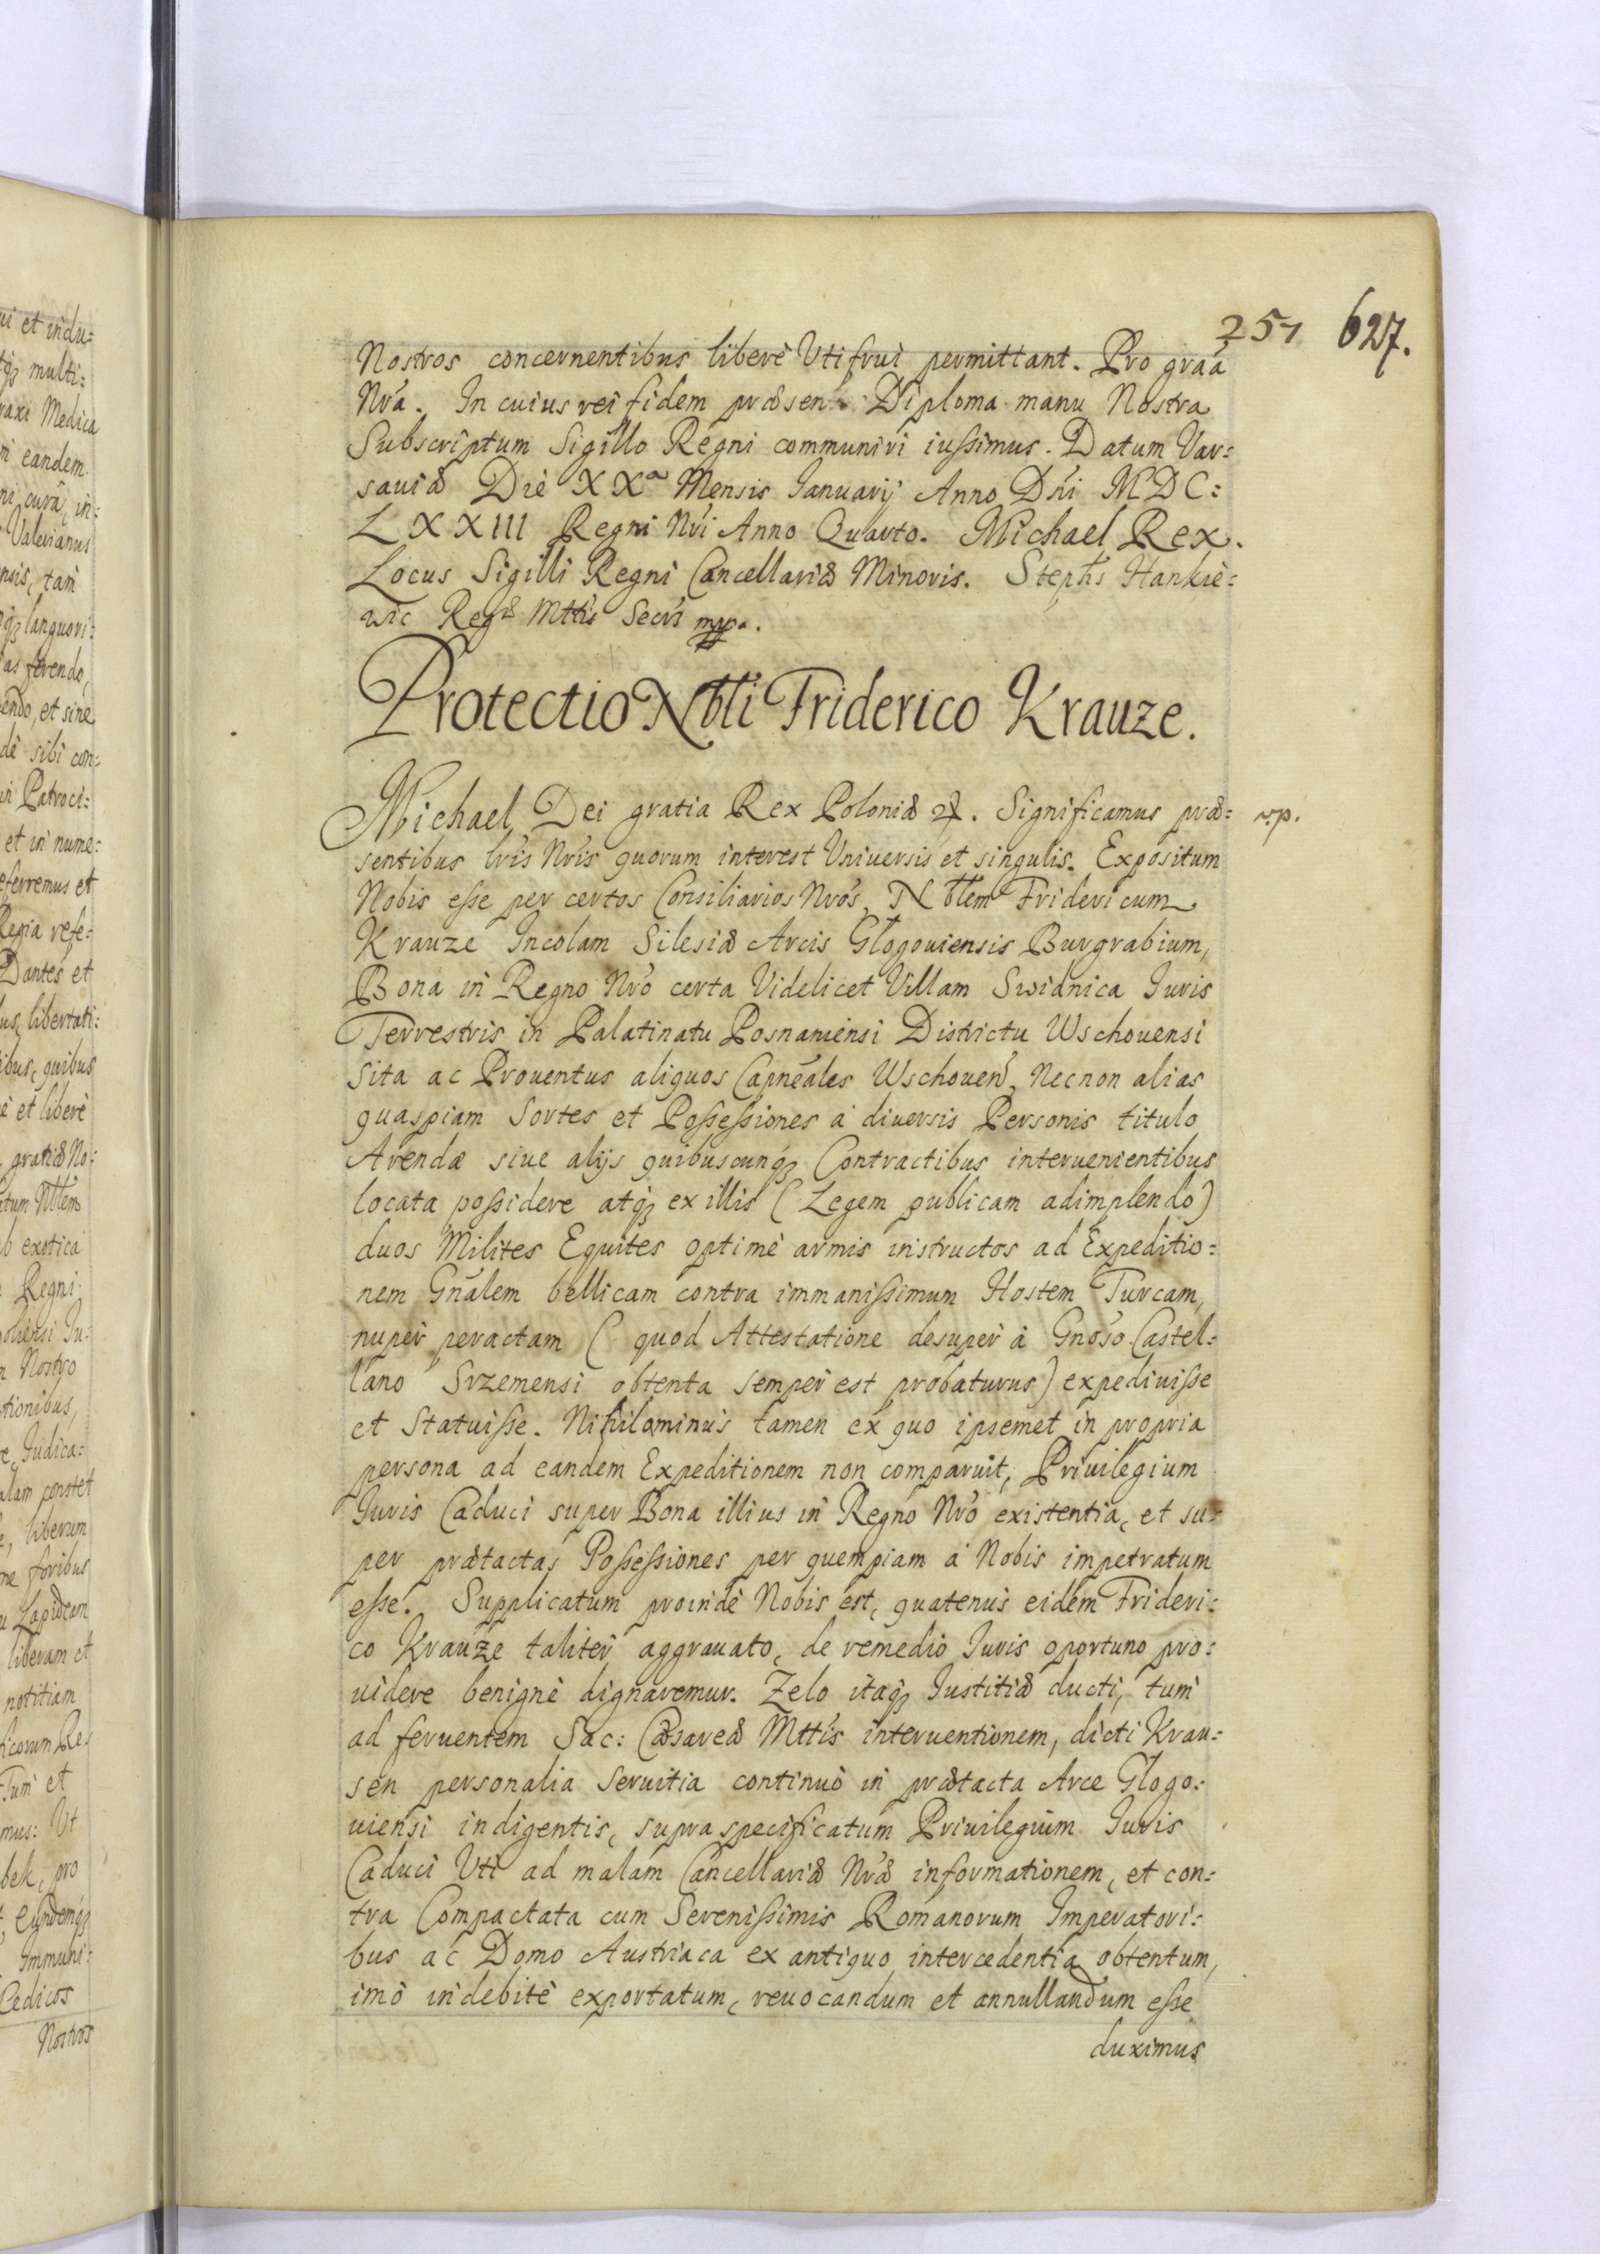 257 627.
Nostros concernentibus liberè Uti frui permittant. Pro graá
Nrá. In cuius rei fidem præsens Diploma manu Nostra
Subscriptum Sigillo Regni communiri iussimus. Datum Var=
saviæ Die XXa Mensis Ianuarij Anno Dńi MDC=
LXXIII Regni Nrí Anno Quarto. Michael Rex.
Locus Sigilli Regni Cancellariæ Minoris. Stephs Hankie=
wic Regæ Mttis Secrs mpp.
Protectio Nbli Friderico Krauze.
Michael Dei gratia Rex Poloniæ &. Significamus præ= r.p.
sentibus lrís Nrís quorum interest Universis et singulis. Expositum
Nobis esse per certos Consiliarios Nrós, Nblem Fridericum
Krauze Incolam Silesiæ Arcis Glogoviensis Burgrabium,
Bona in Regno Nró certa Videlicet Villam Swidnica Iuris
Terrestris in Palatinatu Posnaniensi Districtu Wschovensi
sita ac Proventus aliquos Capneáles Wschoven, Necnon alias
quaspiam Sortes et Possessiones á diversis Personis titulo
Arendæ sive alijs quibuscunq Contractibus intervenientibus
locata possidere atq ex illis (Legem publicam adimplendo)
duos Milites Equites optimè armis instructos ad Expeditio=
nem Gnálem bellicam contra immanissimum Hostem Turcam,
nuper peractam (quod Attestatione desuper à Gnóso Castel=
lano Srzemensi obtenta semper est probaturus) expedivisse
et Statuisse. Nihilominus tamen ex quo ipsemet in propria
persona ad eandem Expeditionem non comparuit, Privilegium
Iuris Caduci super Bona illius in Regno Nró existentia, et su=
per prætactas Possessiones per quempiam á Nobis impetratum
esse. Supplicatum proindè Nobis est, quatenus eidem Frideri=
co Krauze taliter aggravato, de remedio Iuris oportuno pro=
videre benignè dignaremur. Zelo itaq Iustitiæ ducti, tum
ad ferventem Sac: Cæsareæ Mttis interventionem, dicti Krau=
sen personalia servitia continuò in prætacta Arce Glogo=
viensi indigentis, supra specificatum Privilegium Iuris
Caduci Uti ad malam Cancellariæ Nrǽ informationem, et con=
tra Compactata cum Serenissimis Romanorum Imperatori=
bus ac Domo Austriaca ex antiquo intercedentia obtentum,
imò indebitè exportatum, revocandum et annullandum esse
duximus